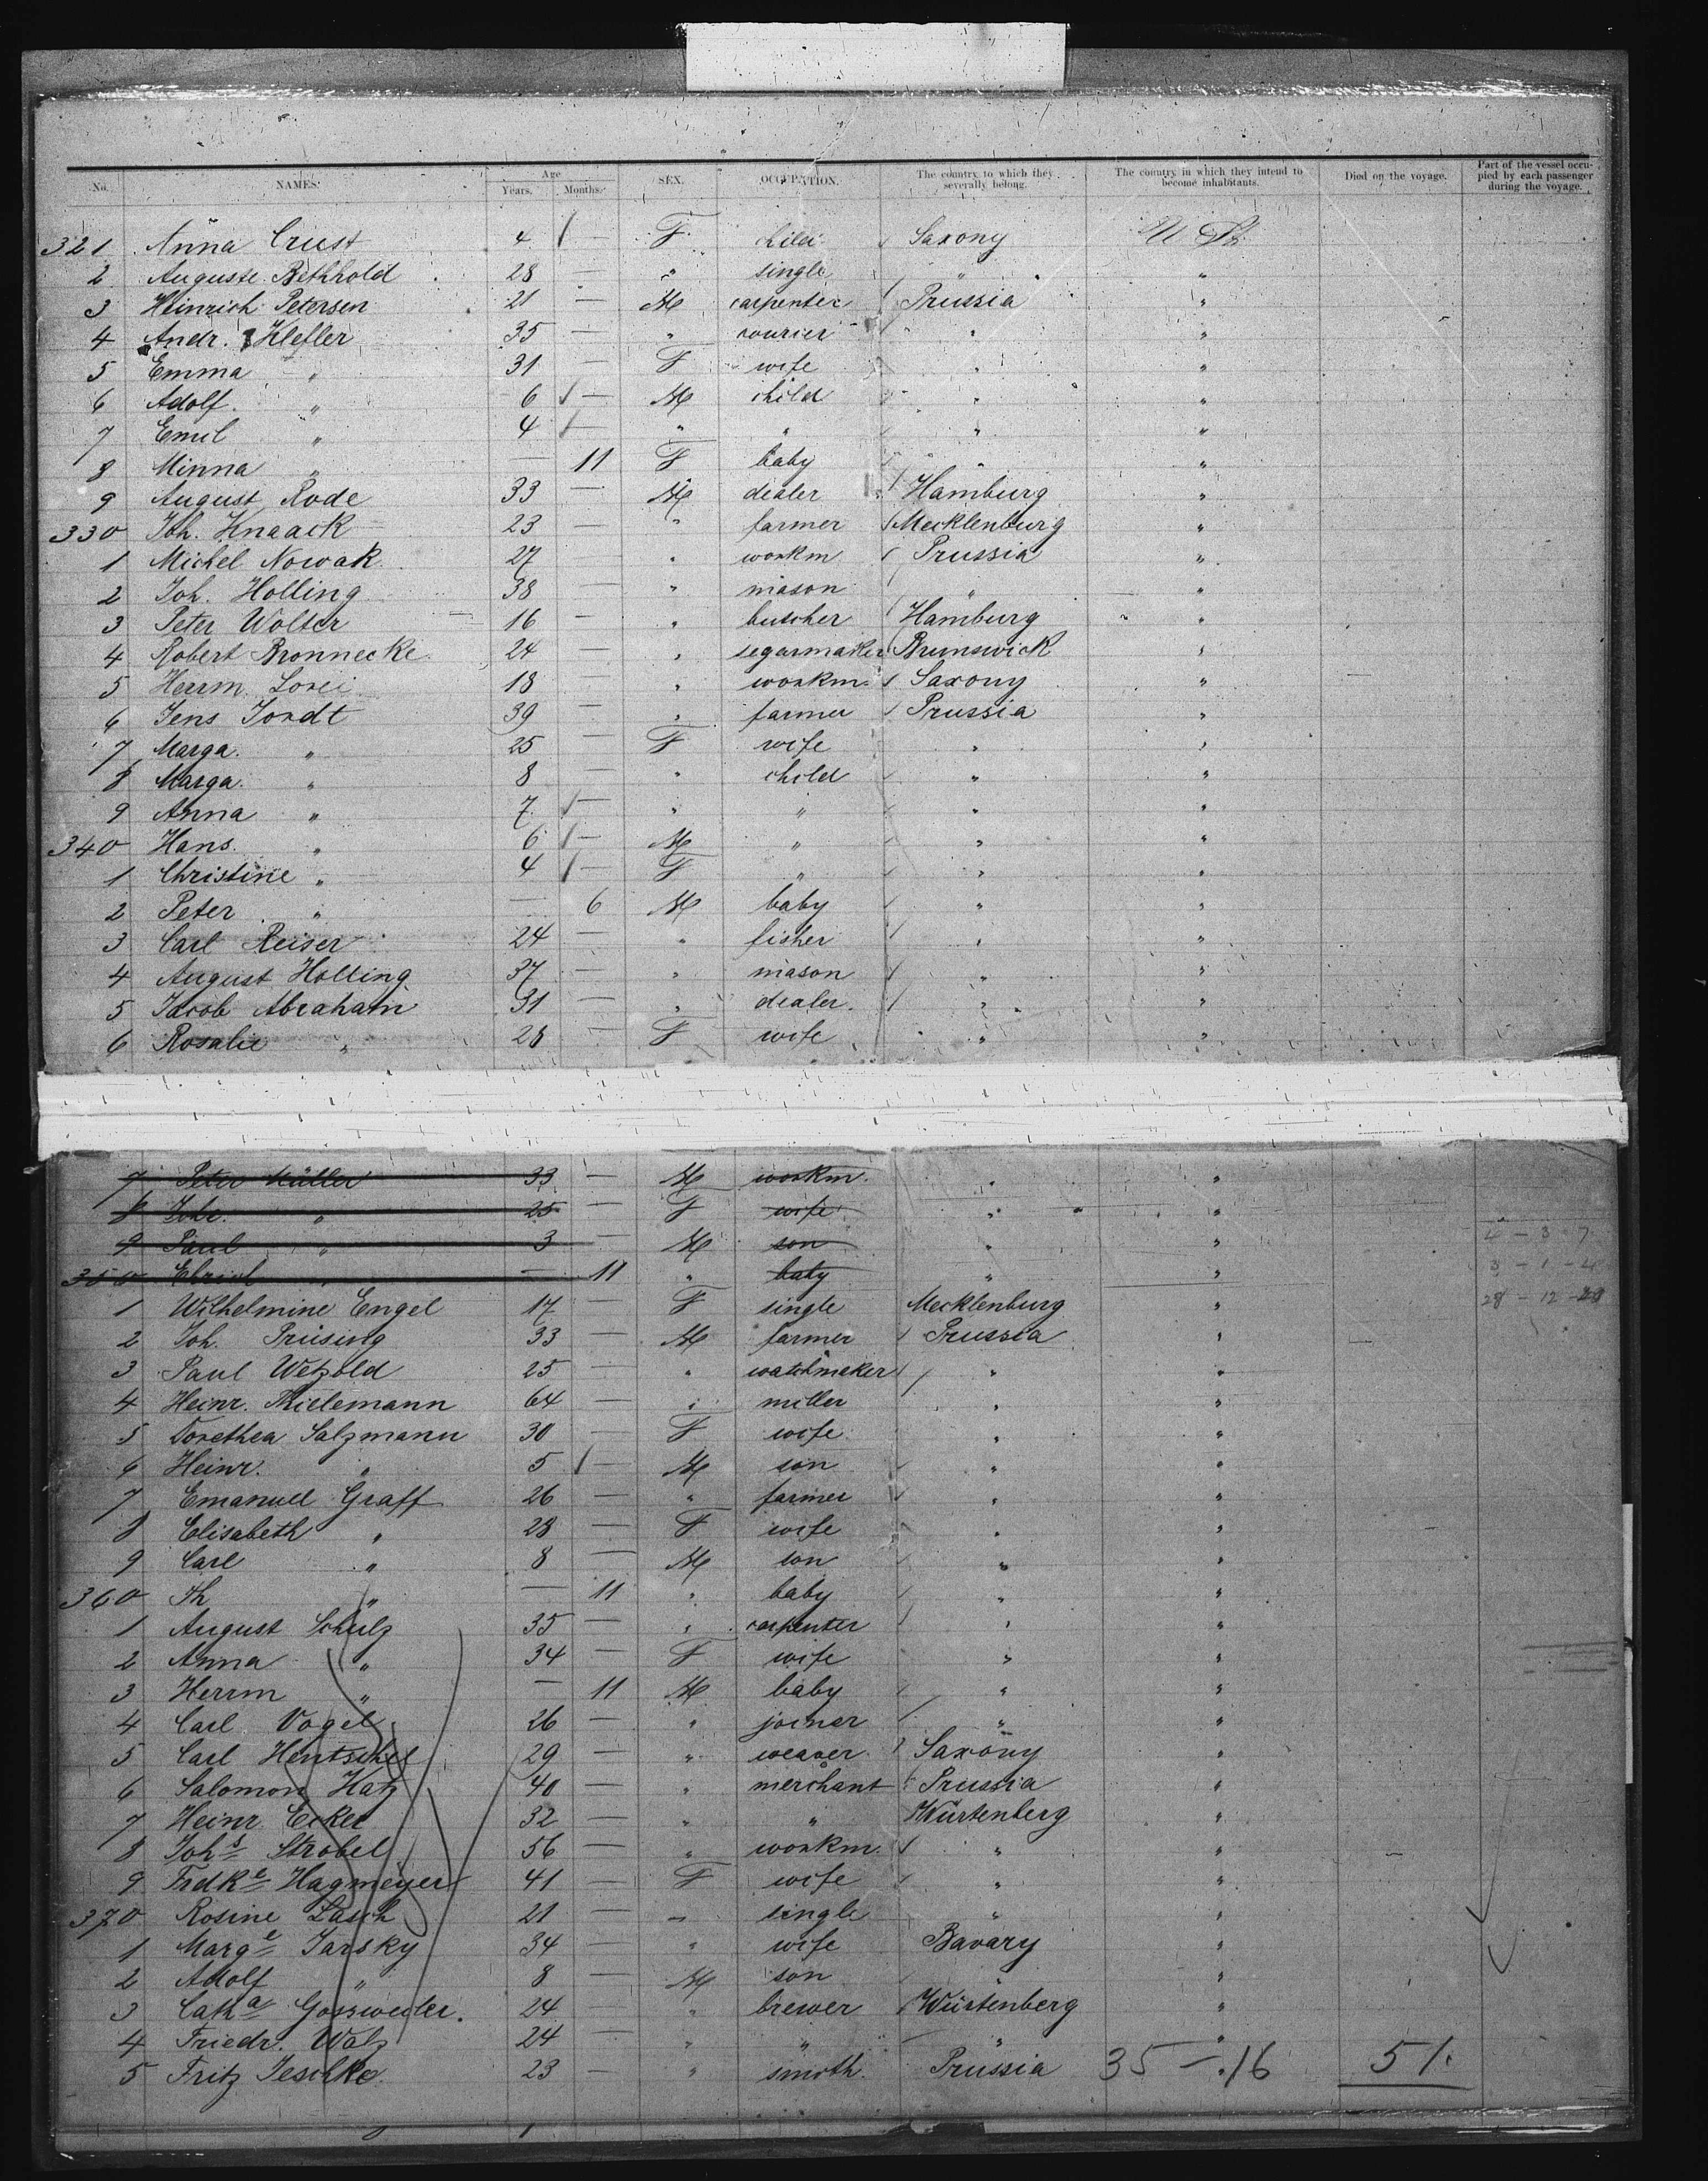 No. NAMES. Age Years. Months. SEX. OCCUPATION. The country to which they severally belong. The country in which they intend to become inhabitants. Died on the voyage. Part of the vessel occupied by each passenger during the voyage.
321 Anna Crust 4 — F child Saxony U St.
2 Auguste Bethhold 28 — " single " "
3 Heinrich Petersen 21 — M carpenter Prussia "
4 Andr. Klefler 35 — " courier " "
5 Emma " 31 — F wife " "
6 Adolf " 6 — M child " "
7 Emil " 4 — " " " "
8 Minna " — 11 F baby " "
9 August Rode 33 — M dealer Hamburg "
330 Joh. Knaack 23 — " farmer Mecklenburg "
1 Michel Nowak 27 — " workm Prussia "
2 Joh. Holling 38 — " mason " "
3 Peter Wolter 16 — " butcher Hamburg "
4 Robert Bronnecke 24 — " segarmaker Brunswick "
5 Herrm. Lorei 18 — " workm. Saxony "
6 Jens Jordt 39 — " farmer Prussia "
7 Marga. " 25 — F wife " "
8 Marga. " 8 — " child " "
9 Anna " 7 — " " " "
340 Hans. " 6 — M " " "
1 Christine " 4 — F " " "
2 Peter " — 6 M baby " "
3 Carl Reiser 24 — " fisher " "
4 August Holling 37 — " mason " "
5 Jacob Abraham 31 — " dealer. " "
6 Rosalie " 28 — F wife " "
7 Peter Müller 33 — M workm. " "
8 Joh. " 25 — F wife " "
9 Paul " 3 — M son " " 4 — 3 7
350 " — 11 " baby " " 3 — 1 — 4
1 Wilhelmine Engel 17 — F single Mecklenburg " 28 — 12 —
2 Joh. Prüsing 33 — M farmer Prussia "
3 Paul Wetzold 25 — " watchmaker " "
4 Heinr. Thielemann 64 — " miller " "
5 Dorethea Salzmann 30 — F wife " "
6 Heinr. " 5 — M son " "
7 Emanuel Graff 26 — " farmer " "
8 Elisabeth " 28 — F wife " "
9 Carl " 8 — M son " "
360 Th " — 11 " baby " "
1 August Schulz 35 — " carpenter " "
2 Anna " 34 — F wife " "
3 Herrm " — 11 M baby " "
4 Carl Vogel 26 — " joiner " "
5 Carl Hentschel 29 — " weaver Saxony "
6 Salomon Katz 40 — " merchant Prussia "
7 Heinr. Eckel 32 — " " Würtenberg "
8 Johs Strobel 56 — " workm. " "
9 Fndke Hagmeyer 41 — F wife " "
370 Rosine Lasch 21 — " single " "
1 Marge Jarsky 34 — " wife Bavary "
2 Adolf " 8 — M son " "
3 Catha Gossweiler. 24 — " brewer Würtenberg "
4 Friedr. Walz 24 — " " " "
5 Fritz Jeschke 23 — " smith. Prussia 35 — 16 51.